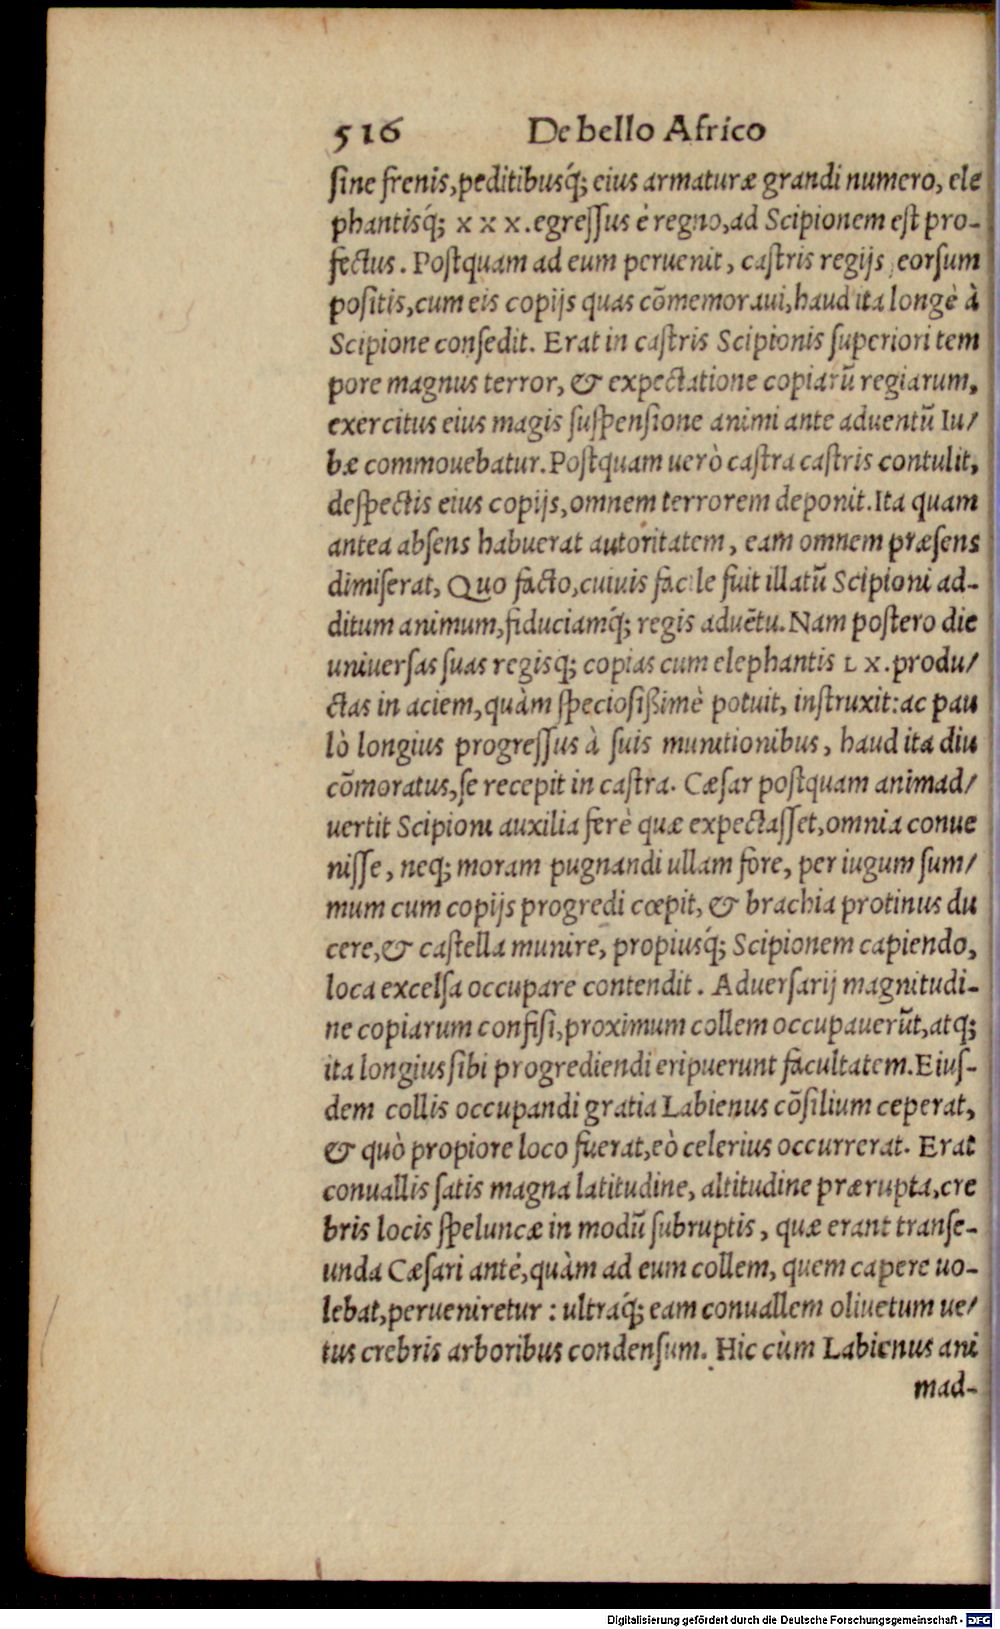 516 De bello Africo
sine frenis, peditibusq́; eius armaturæ grandi numero, ele
phantisq́; X X X. egressus è regno, ad Scipionem est pro-
fectus. Postquam ad eum peruenit, castris regijs seorsum
positis, cum eis copijs quas cõmemoraui, haud ita longè à
Scipione consedit. Erat in castris Scipionis superiori tem
pore magnus terror, & expectatione copiarũ regiarum,
exercitus eius magis suspensione animi ante aduentũ Iu/
bæ commouebatur. Postquam uerò castra castris contulit,
despectis eius copijs, omnem terrorem deponit. Ita quam
antea absens habuerat autoritatem, eam omnem præsens
dimiserat, Quo facto, cuiuis facile fuit illatũ Scipioni ad-
ditum animum, fiduciamq́; regis aduẽtu. Nam postero die
uniuersas suas regisq; copias cum elephantis L X. produ/
ctas in aciem, quàm speciosißimè potuit, instruxit: ac pau
lò longius progressus à suis munitionibus, haud ita diu
cõmoratus, se recepit in castra. Cæsar postquam animad/
uertit Scipioni auxilia ferè quæ expectasset, omnia conue
nisse, neq; moram pugnandi ullam fore, per iugum sum/
mum cum copijs progredi cœpit, & brachia protinus du
cere, & castella munire, propiusq́; Scipionem capiendo,
loca excelsa occupare contendit. Aduersarij magnitudi-
ne copiarum confisi, proximum collem occupauerũt, atq;
ita longius sibi progrediendi eripuerunt facultatem. Eius-
dem collis occupandi gratia Labienus cõsilium ceperat,
& quò propiore loco fuerat, eò celerius occurrerat. Erat
conuallis satis magna latitudine, altitudine prærupta, cre
bris locis speluncæ in modũ subruptis, quæ erant transe-
unda Cæsari antè, quàm ad eum collem, quem capere uo-
lebat, perueniretur: ultraq́; eam conuallem oliuetum ue/
tus crebris arboribus condensum. Hic cùm Labienus ani
mad-
Digitalisierung gefördert durch die Deutsche Forschungsgemeinschaft - DFG